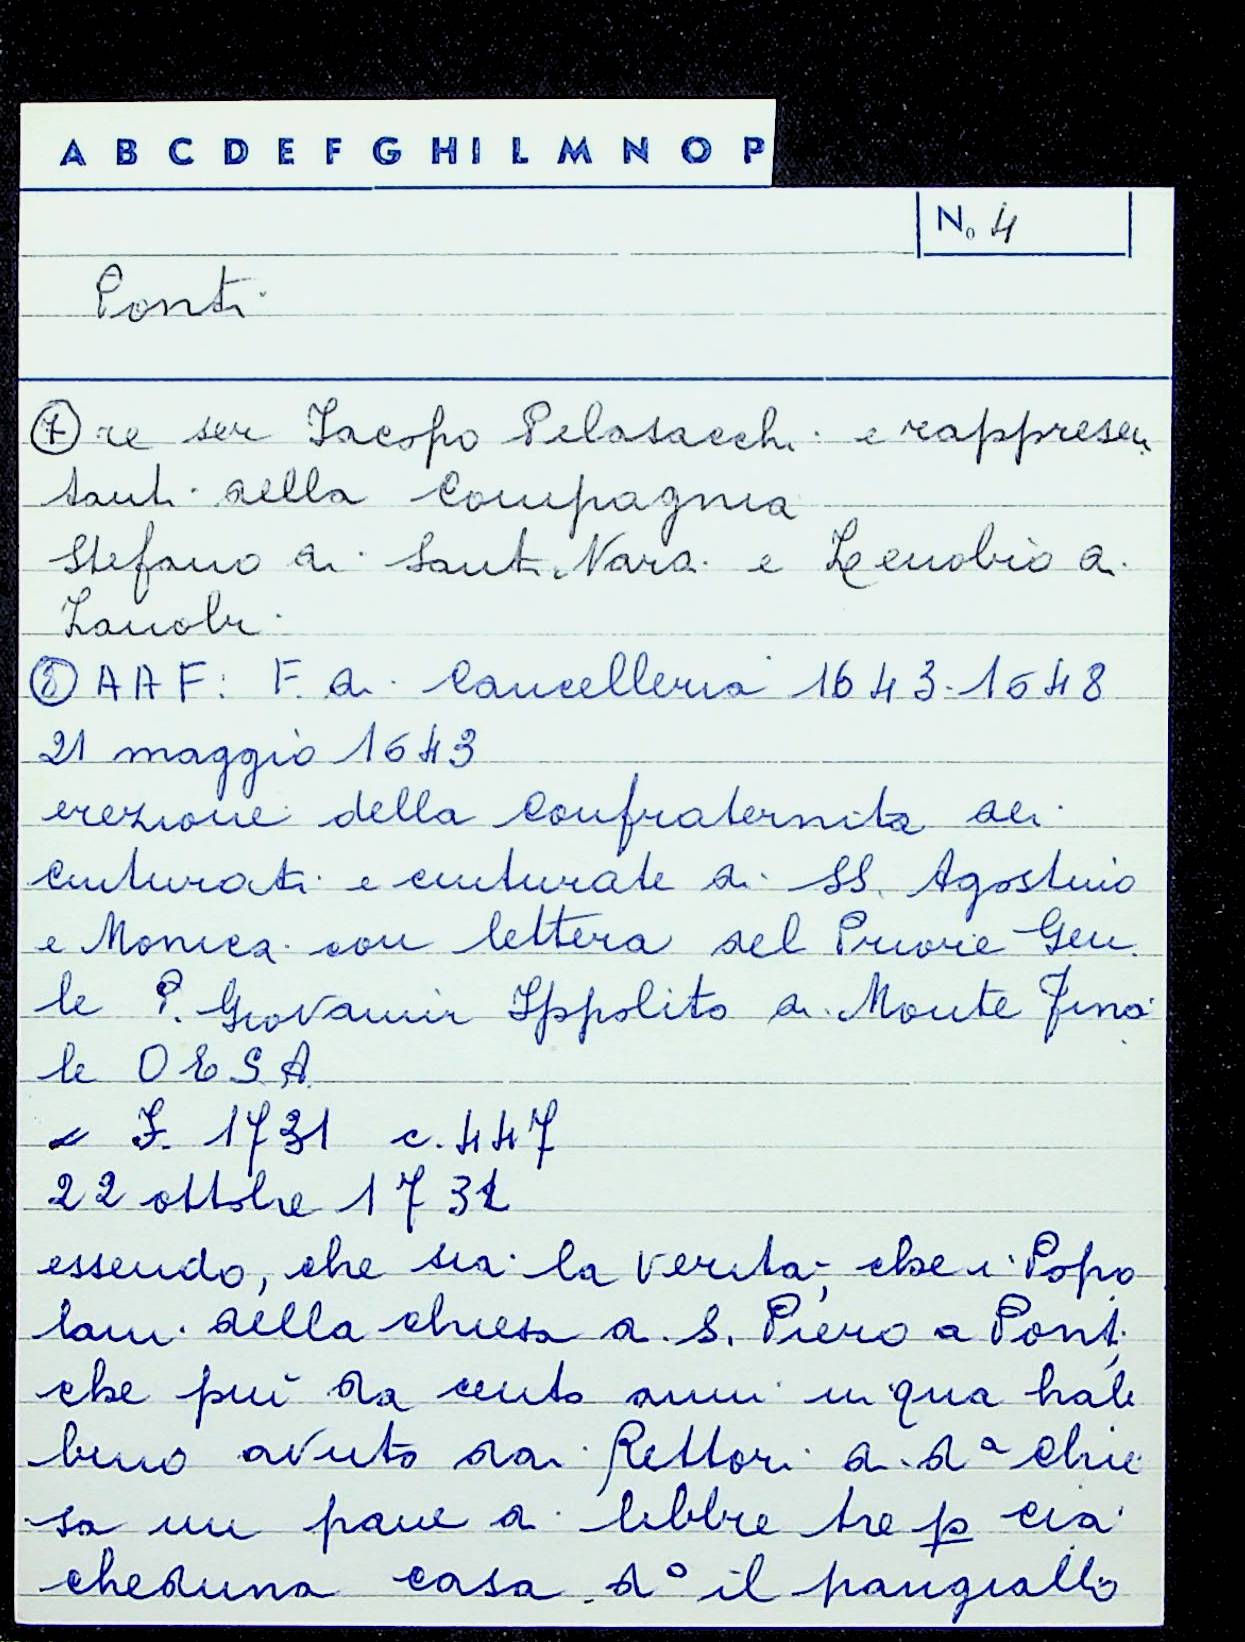 A B C D E F G H I L M N O P
No 4
Ponti
⑦ re ser Iacopo Pelasacchi e rappresen
tanti della Compagnia
Stefano di Santi Nara e Zenobio di
Zanobi
⑧ AAF: F. di Cancelleria 1643-1648
21 maggio 1643
erezione della Confraternita dei
cinturati e cinturate di SS. Agostino
e Monica con lettera del Priore Gen.
le P. Giovanni Ippolito di Monte Fina
le O E S A
F. 1731 c. 447
22 ottobre 1731
essendo, che sia la verità, che i Popo
lani della chiesa di S. Piero a Ponti,
che più da cento anni in qua hab
bino avuto dai Rettori di dª chie
sa un pane di libbre tre p cia
cheduna casa dº il pangiallo